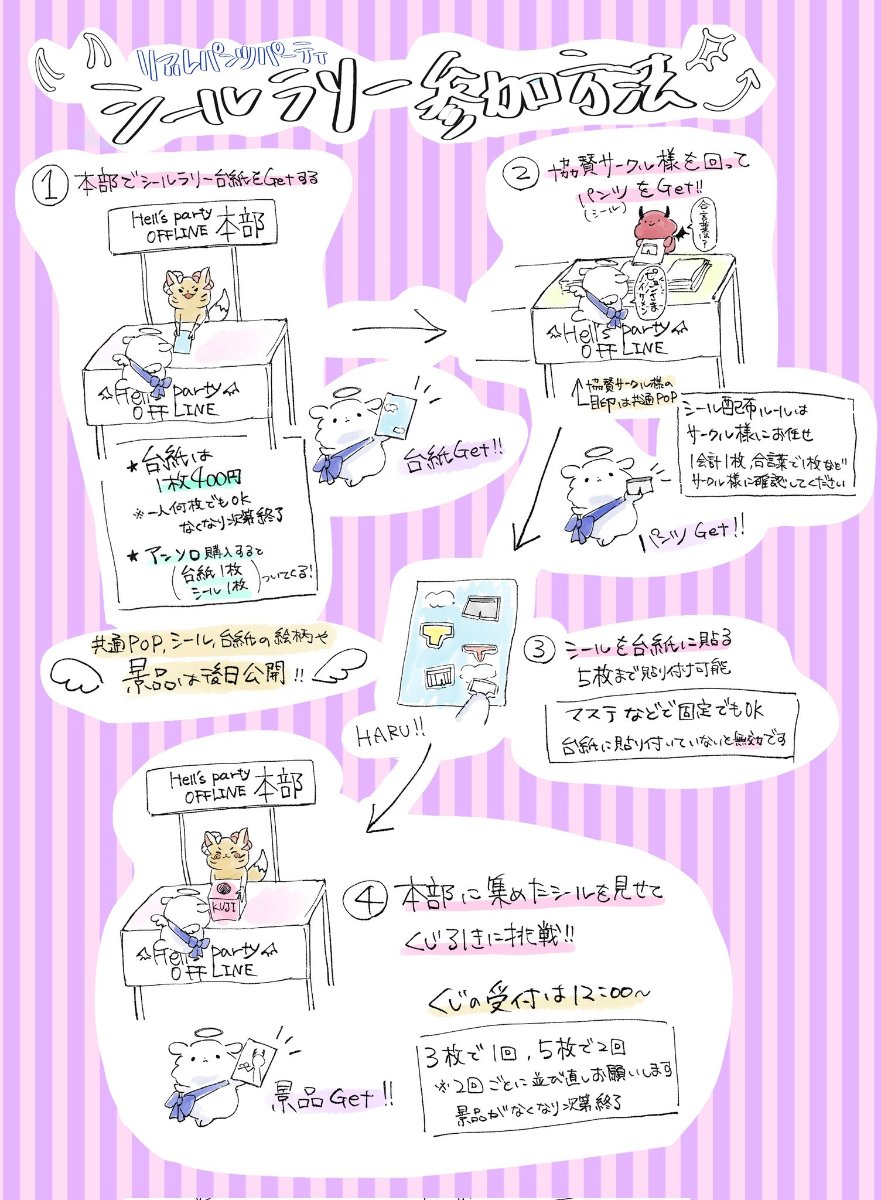 リアルパンツパーティ
シールラリー参加方法
① 本部でシールラリー台紙をGetする
Hell's party
OFFLINE 本部
Hell's party
OFF LINE
★台紙は
1枚400円
※一人何枚でもOK
なくなり次第終了
★アンソロ購入すると
(台紙1枚
シール1枚) ついてくる!
台紙Get!!
② 協賛サークル様を回って
パンツをGet!!
(シール)
合言葉は?
Hell's party
OFF LINE
協賛サークル様の
目印は共通POP
シール配布ルールは
サークル様にお任せ
1会計1枚、合言葉で1枚など
サークル様に確認してください
パンツGet!!
共通POP,シール,台紙の絵柄や
景品は後日公開!!
HARU!!
③ シールを台紙に貼る
5枚まで貼り付け可能
マステなどで固定でもOK
台紙に貼り付いていないと無効です
Hell's party
OFFLINE 本部
KUJI
Hell's party
OFF LINE
④ 本部に集めたシールを見せて
くじ引きに挑戦!!
くじの受付は12:00~
3枚で1回,5枚で2回
※2回ごとに並び直しお願いします
景品がなくなり次第終了
景品Get!!